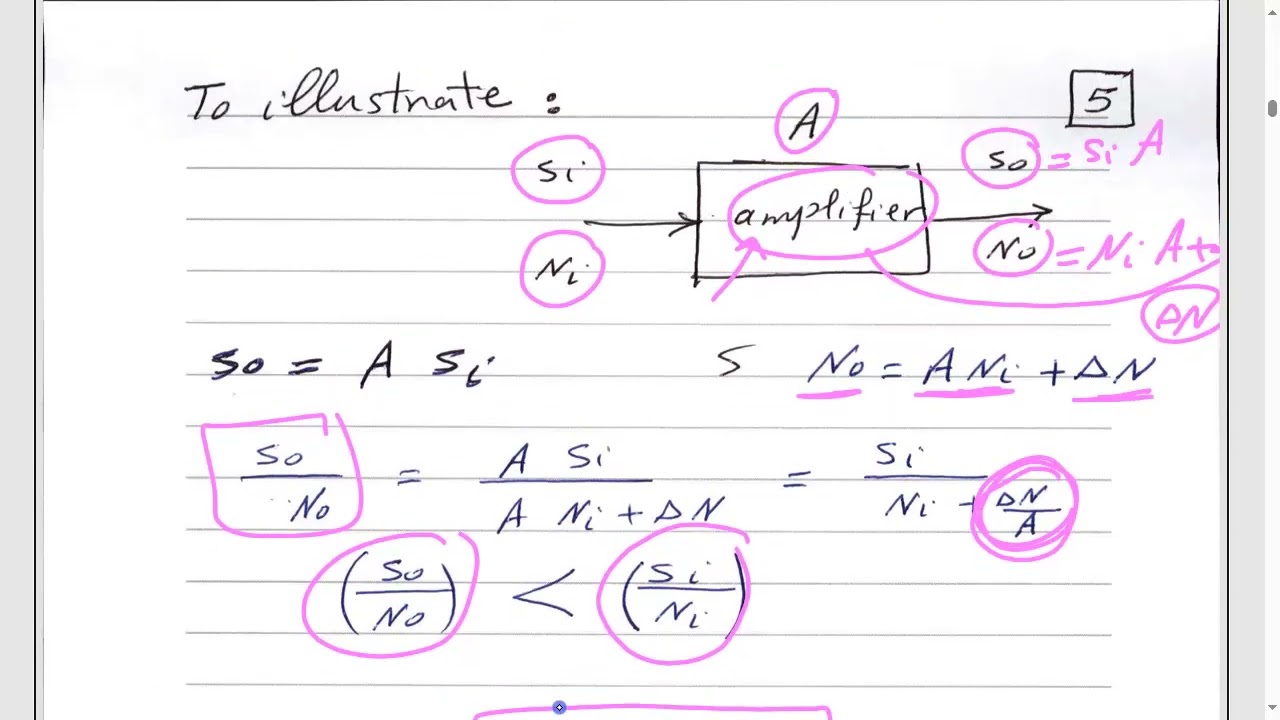 To illustrate :
5
A
Si
So = Si A
amplifier
Ni
No = Ni A +
ΔN
So = A Si S No = A Ni + ΔN
So/No = A Si / A Ni + ΔN = Si / Ni + ΔN/A
(So/No) < (Si/Ni)